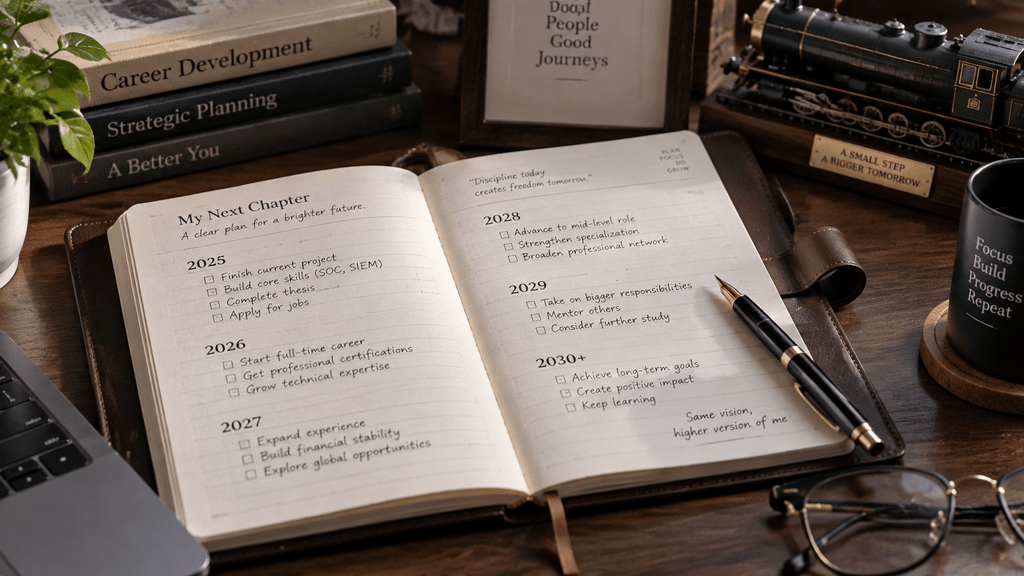 Career Development
Strategic Planning
A Better You
Good
People
Good
Journeys
A SMALL STEP
A BIGGER TOMORROW
My Next Chapter
A clear plan for a brighter future.
2025
Finish current project
Build core skills (SOC, SIEM)
Complete thesis
Apply for jobs
2026
Start full-time career
Get professional certifications
Grow technical expertise
2027
Expand experience
Build financial stability
Explore global opportunities
"Discipline today
creates freedom tomorrow."
PLAN
FOCUS
DO
GROW
2028
Advance to mid-level role
Strengthen specialization
Broaden professional network
2029
Take on bigger responsibilities
Mentor others
Consider further study
2030+
Achieve long-term goals
Create positive impact
Keep learning
Same vision,
higher version of me
Focus
Build
Progress
Repeat